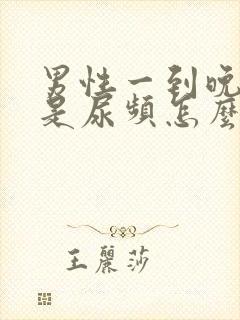 男性一到晚
是尿頻怎麼
王麗莎